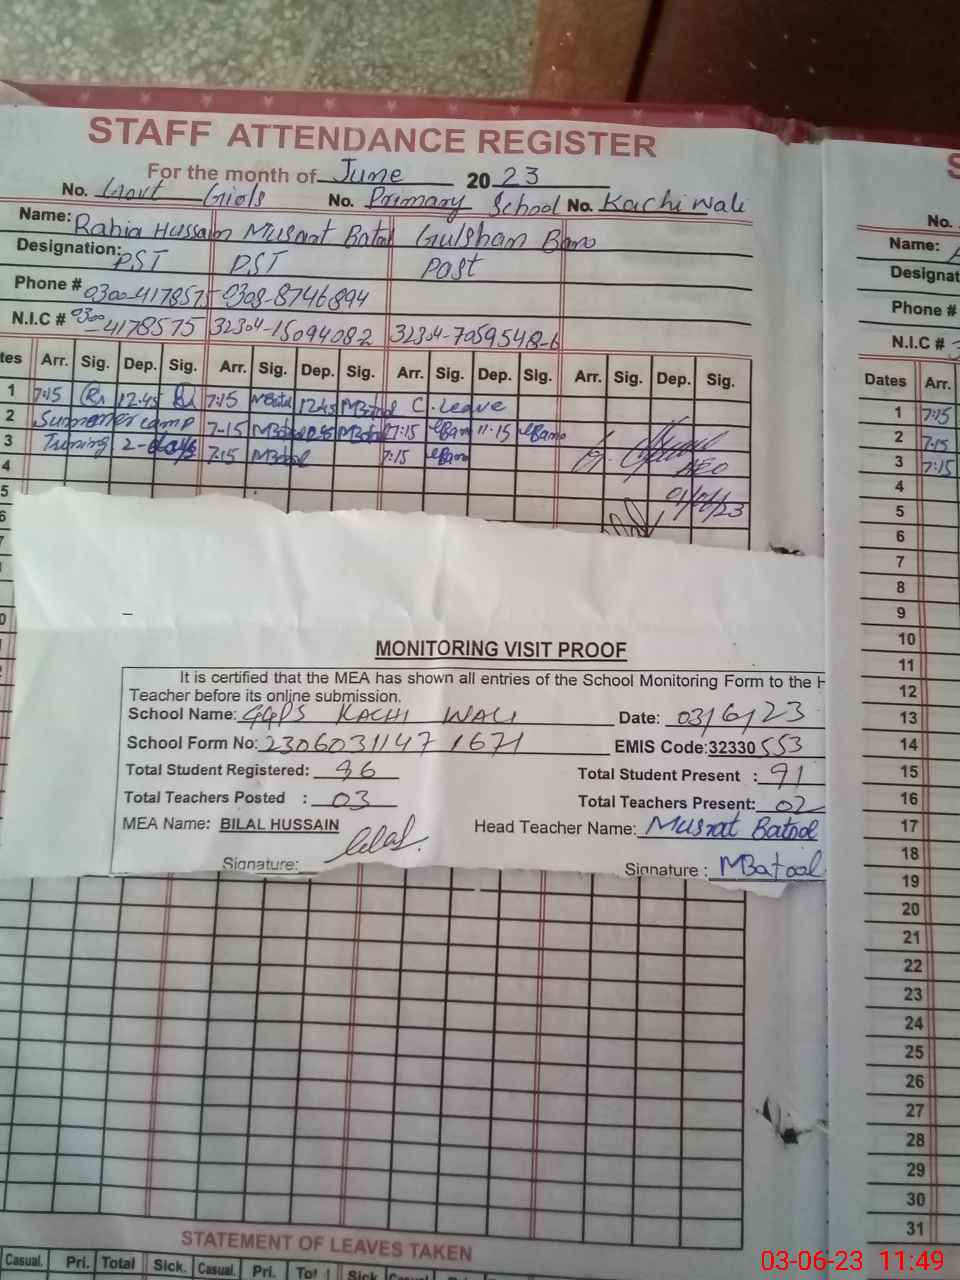 STAFF ATTENDANCE REGISTER
For the month of June 2023
No. Govt Girls No. Primary School No. Kachi Wali
Name: Rabia Hussain Musrat Batol Gulshan Bano
Designation: PST PST Post
Phone # 0300-4178575 0308-8746894
N.I.C # 0300-4178575 32304-1509408-2 32304-7059548-6
tes Arr. Sig. Dep. Sig. Arr. Sig. Dep. Sig. Arr. Sig. Dep. Sig. Arr. Sig. Dep. Sig.
1 7:15 12:45 7:15 12:45 MBatol C. Leave
2 Summer camp 7-15 MBatol MBatol 7:15 11-15
3 Traning 2-days 7:15 MBatol 7:15
AEO
4
01/06/23
5
6
MONITORING VISIT PROOF
It is certified that the MEA has shown all entries of the School Monitoring Form to the H
Teacher before its online submission.
School Name: GGPS KACHI WALI Date: 03/6/23
School Form No: 23060311471671 EMIS Code:32330553
Total Student Registered: 96 Total Student Present : 91
Total Teachers Posted : 03 Total Teachers Present: 02
MEA Name: BILAL HUSSAIN Head Teacher Name: Musrat Batool
Signature: Bilal Signature : MBatool
STATEMENT OF LEAVES TAKEN
Casual. Pri. Total Sick. Casual. Pri. Tot Sick Casual
S
No.
Name:
Designat
Phone #
N.I.C #
Dates Arr.
1 7:15
2 7:15
3 7:15
4
5
6
7
8
9
10
11
12
13
14
15
16
17
18
19
20
21
22
23
24
25
26
27
28
29
30
31
03-06-23 11:49